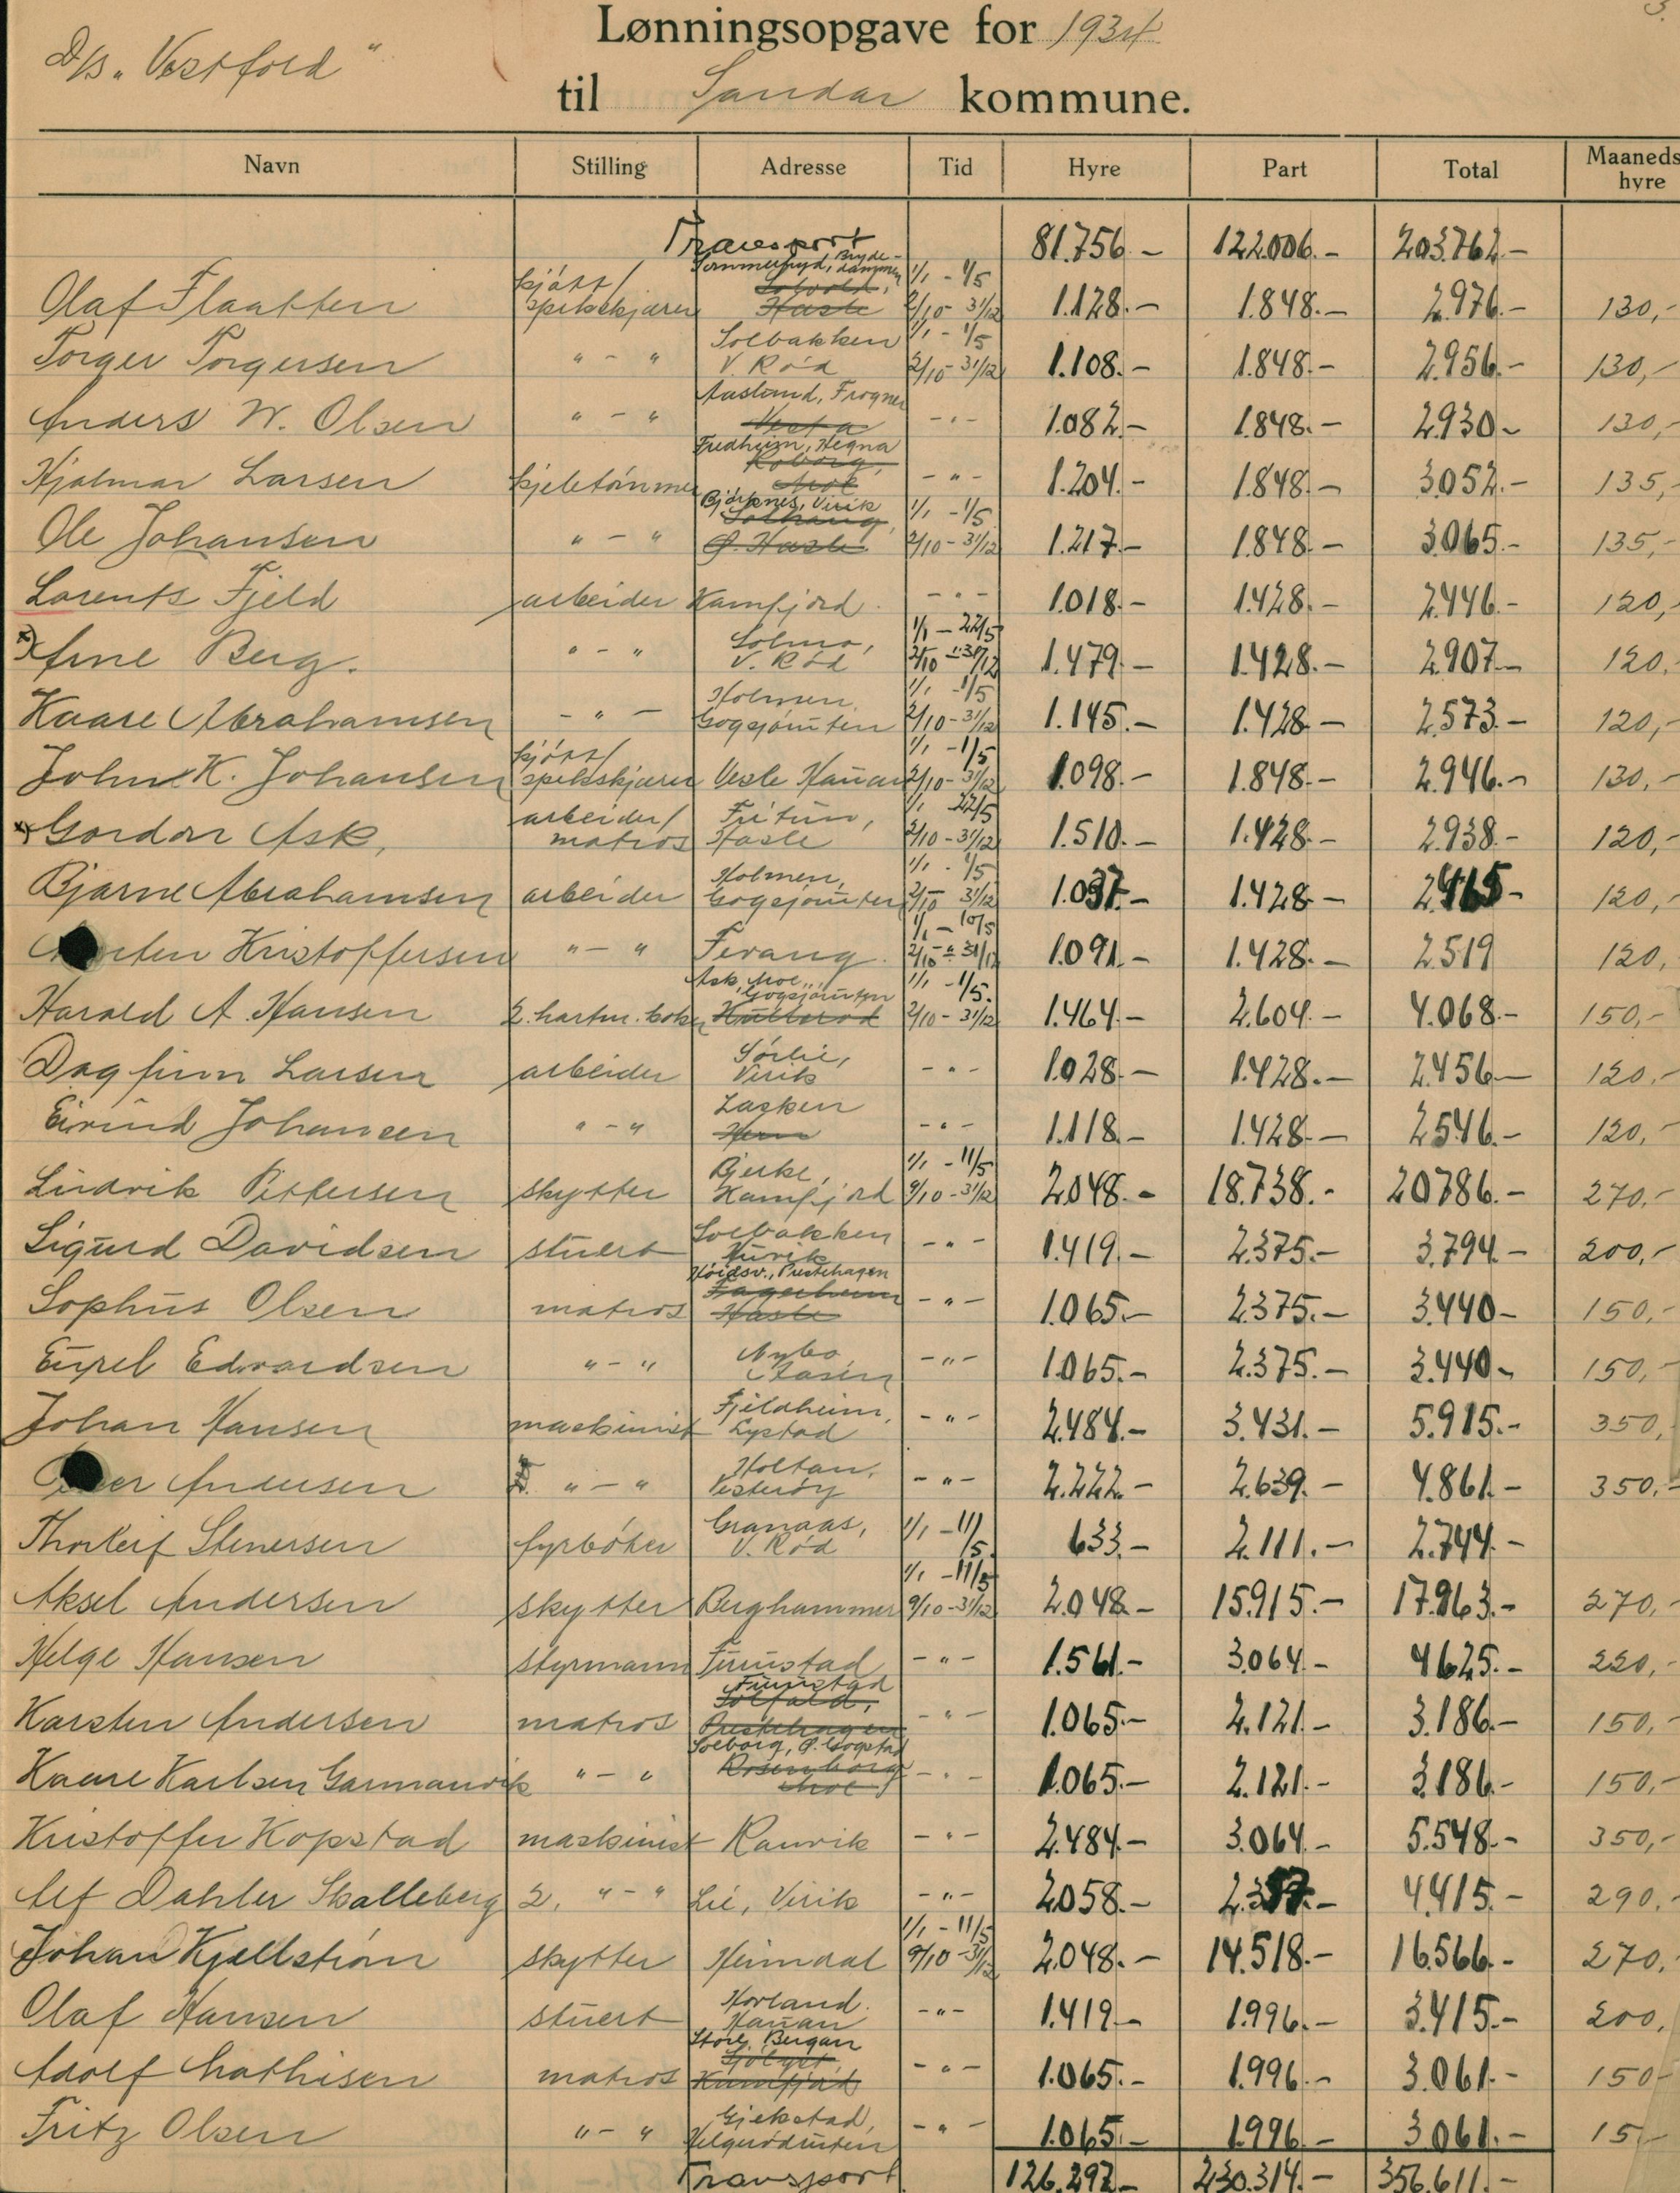 D/S „Vestfold"
Lønningsopgave for 1934
til Sandar kommune.
Navn Stilling Adresse Tid Hyre Part Total Maaneds hyre
Transport 81.756.- 122.006.- 203.762.-
Sommerfryd, Bryde-dammen
Solvold,
Olaf Flaatten kjøtt/spekskjærer Hasle 1/1 - 1/5 2/10 - 31/12 1.128.- 1.848.- 2.976.- 130,-
Torger Torgersen " - " Solbakken V. Rød 1/1 - 1/5 2/10 - 31/12 1.108.- 1.848.- 2.956.- 130,-
Anders W. Olsen " - " Aaslund, Frogner - " - 1.082.- 1.848.- 2.930.- 130,-
Hjalmar Larsen kjeletømmer Fredheim, Hegna Roborg, Moe - " - 1.204.- 1.848.- 3.052.- 135,-
Ole Johansen " - " Bjørknes, Virik Solhaug, Ø. Hasle 1/1 - 1/5 2/10 - 31/12 1.217.- 1.848.- 3.065.- 135,-
Lorents Fjeld arbeider Kamfjord. - " - 1.018.- 1.428.- 2.446.- 120,-
x) Arne Berg. " - " Solmo, V. Rød 1/1 - 22/5 2/10 - 31/12 1.479.- 1.428.- 2.907.- 120.
Kaare Abrahamsen - " - Holmen, Gogsjømten 1/1 - 1/5 2/10 - 31/12 1.145.- 1.428.- 2.573.- 120,-
John K. Johansen kjøtt/spekskjærer Vesle Haúan 1/1 - 1/5 2/10 - 31/12 1.098.- 1.848.- 2.946.- 130,-
x) Gordon Ask, arbeider/matros Fritún, Hasle 1/1 22/5 2/10 - 31/12 1.510.- 1.428.- 2.938.- 120,-
Bjarne Abrahamsen arbeider Holmen, Gogsjømten 1/1 - 1/5 2/10 31/12 1.037.- 1.428.- 2.465- 120,-
Kristoffersen " - " Fevang. 1/1 - 10/5 2/10 - 31/12 1.091.- 1.428.- 2.519 120,
Harald A. Hansen 2. hartm. koker Ask, Moe, Gogsjømten 1/1 - 1/5. 2/10 - 31/12 1.464.- 2.604.- 4.068.- 150,-
Dagfinn Larsen arbeider Sørlie, Virik - " - 1.028.- 1.428.- 2.456.- 120.-
Eivind Johansen " - " Lasken - " - 1.118.- 1.428.- 2546.- 120,-
Ludvik Pettersen skytter Bjerke, Kamfjord 1/1 - 11/5 9/10 - 31/12 2.048.- 18.738.- 20786.- 270.-
Sigurd Davidsen stuert Solbakken - " - 1.419.- 2.375.- 3.794.- 200,-
Sophus Olsen matros Høidsv., Prestehagen Fagerheim Hasle - " - 1.065.- 2.375.- 3.440- 150,-
Edvardsen " - " Nybo, Aasen - " - 1.065.- 2.375.- 3.440.- 150,-
Johan Hansen maskinist Fjeldheim, Lystad - " - 2.484.- 3.431.- 5.915.- 350,
Andersen 2. " - " Holtan, Vesterøy - " - 2.222.- 2.639.- 4.861.- 350.-
Thorleif Stenersen fyrbøter Granaas, V. Rød 1/1 - 11/5 633.- 2.111.- 2.744.-
Aksel Andersen skytter Berghammer 1/1 - 11/5 9/10 - 31/12 2.048.- 15.915.- 17.963.- 270,-
Helge Hansen styrmann Furustad - " - 1.561.- 3.064.- 4625.- 220,-
Karsten Andersen matros Furustad Solfald, Prestehagen - " - 1.065.- 2.121.- 3.186.- 150,-
Kaare Karlsen Garmanvik " - " Solborg, Ø. Gogstad Rosenborg Moe - " - 1.065.- 2.121.- 3.186.- 150,-
Kristoffer Kopstad maskinist Ranvik - " - 2.484.- 3.064.- 5.548.- 350,-
Alf Dahler Skalleberg 2. " - " Lie, Virik - " - 2.058.- 2.357.- 4.415.- 290.-
Johan Kjellstrøm skytter Heimdal 1/1 - 11/5 9/10 - 31/12 2.048.- 14.518.- 16.566.- 270,-
Olaf Hansen stuert Horland. Haúan - " - 1.419.- 1.996.- 3.415.- 200,
Adolf Mathisen matros Store Bergan Solyst, Kamfjord - " - 1.065.- 1.996.- 3.061.- 150-
Fritz Olsen " - " Gjekstad, Helgerødmten - " - 1.065.- 1.996.- 3.061.- 15
Transport 126.297.- 230.314.- 356.611.-